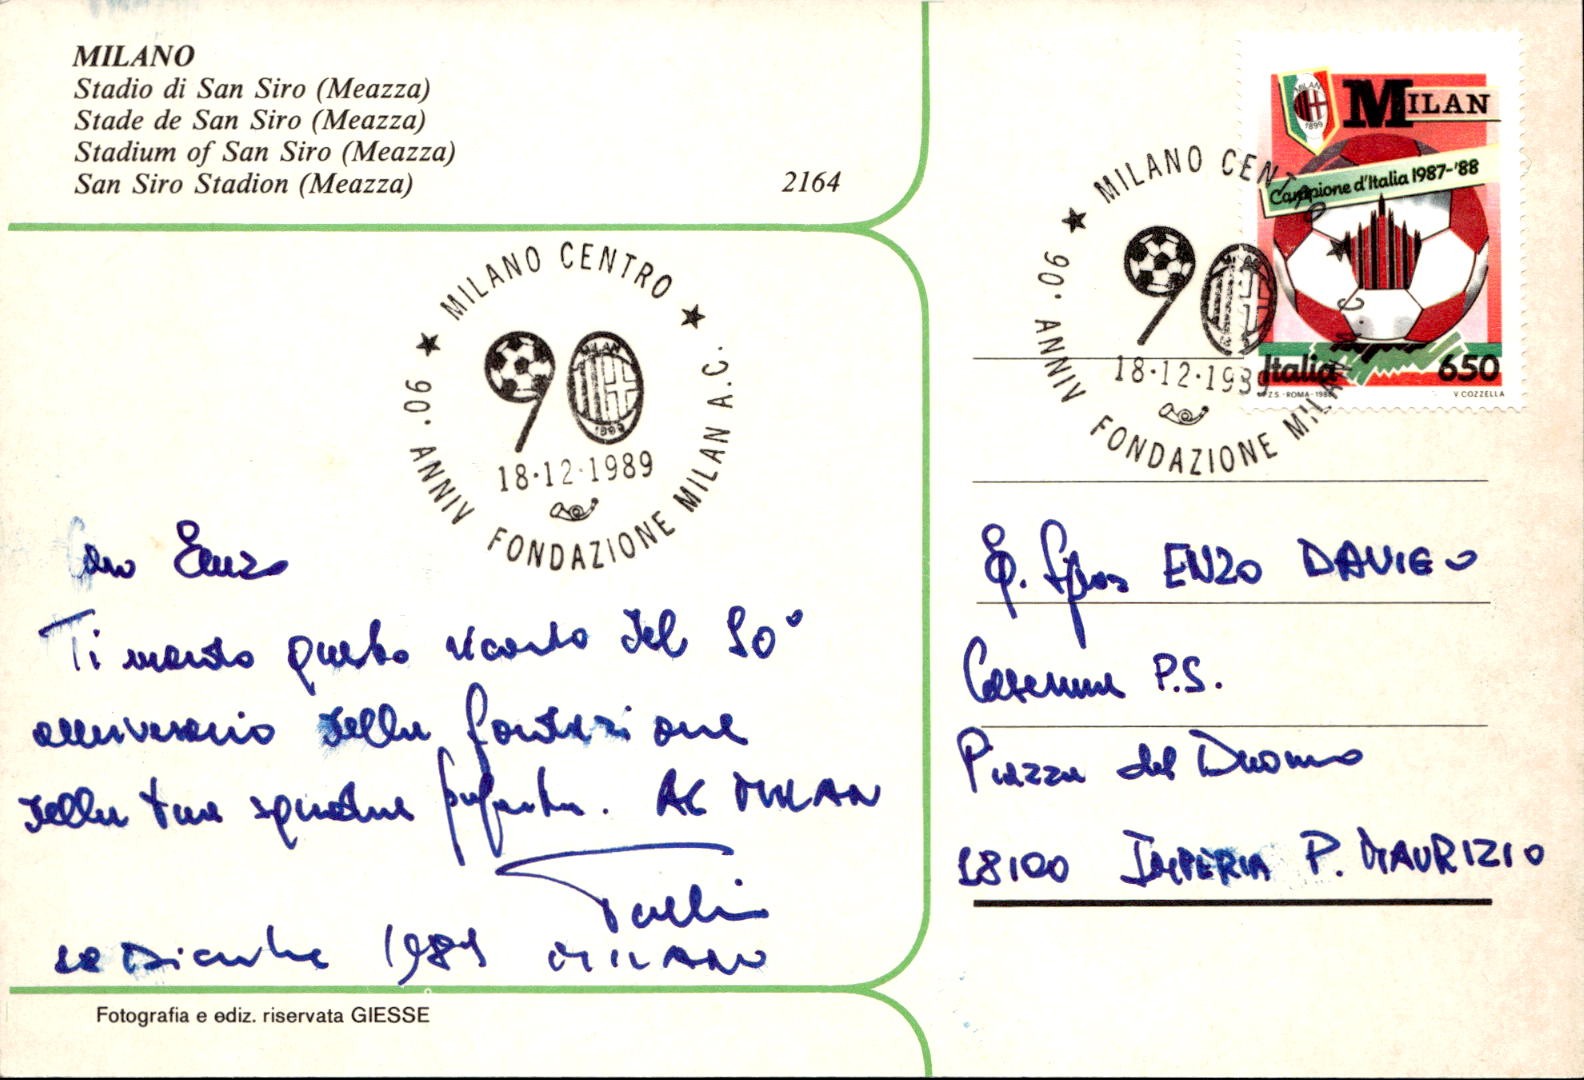 MILANO
Stadio di San Siro (Meazza)
Stade de San Siro (Meazza)
Stadium of San Siro (Meazza)
San Siro Stadion (Meazza)
2164
MILANO CENTRO
90
MILAN
1899
18·12·1989
90· ANNIV FONDAZIONE MILAN A.C.
Caro Enzo
Ti mando questo ricordo del 90°
anniversario della fondazione
della tua squadra preferita. AC MILAN
18 Dicembre 1989 MILANO
Fotografia e ediz. riservata GIESSE
MILAN
1899
MILAN
Campione d'Italia 1987-'88
Italia 650
I.P.Z.S. - ROMA - 1988 V. COZZELLA
MILANO CENTRO
90
18·12·1989
90· ANNIV FONDAZIONE MILAN
ENZO DAVIGO
Caserma P.S.
Piazza del Duomo
18100 IMPERIA P. MAURIZIO